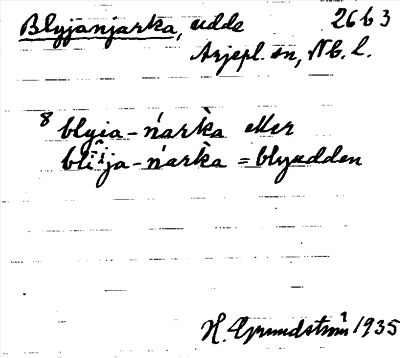 Blyjanjarka, udde 26 b 3
Arjepl. sn, Nb. l.
8 blyia-ńàrkà eller
blīija-ńàrkà = blyudden
H. Grundström 1935